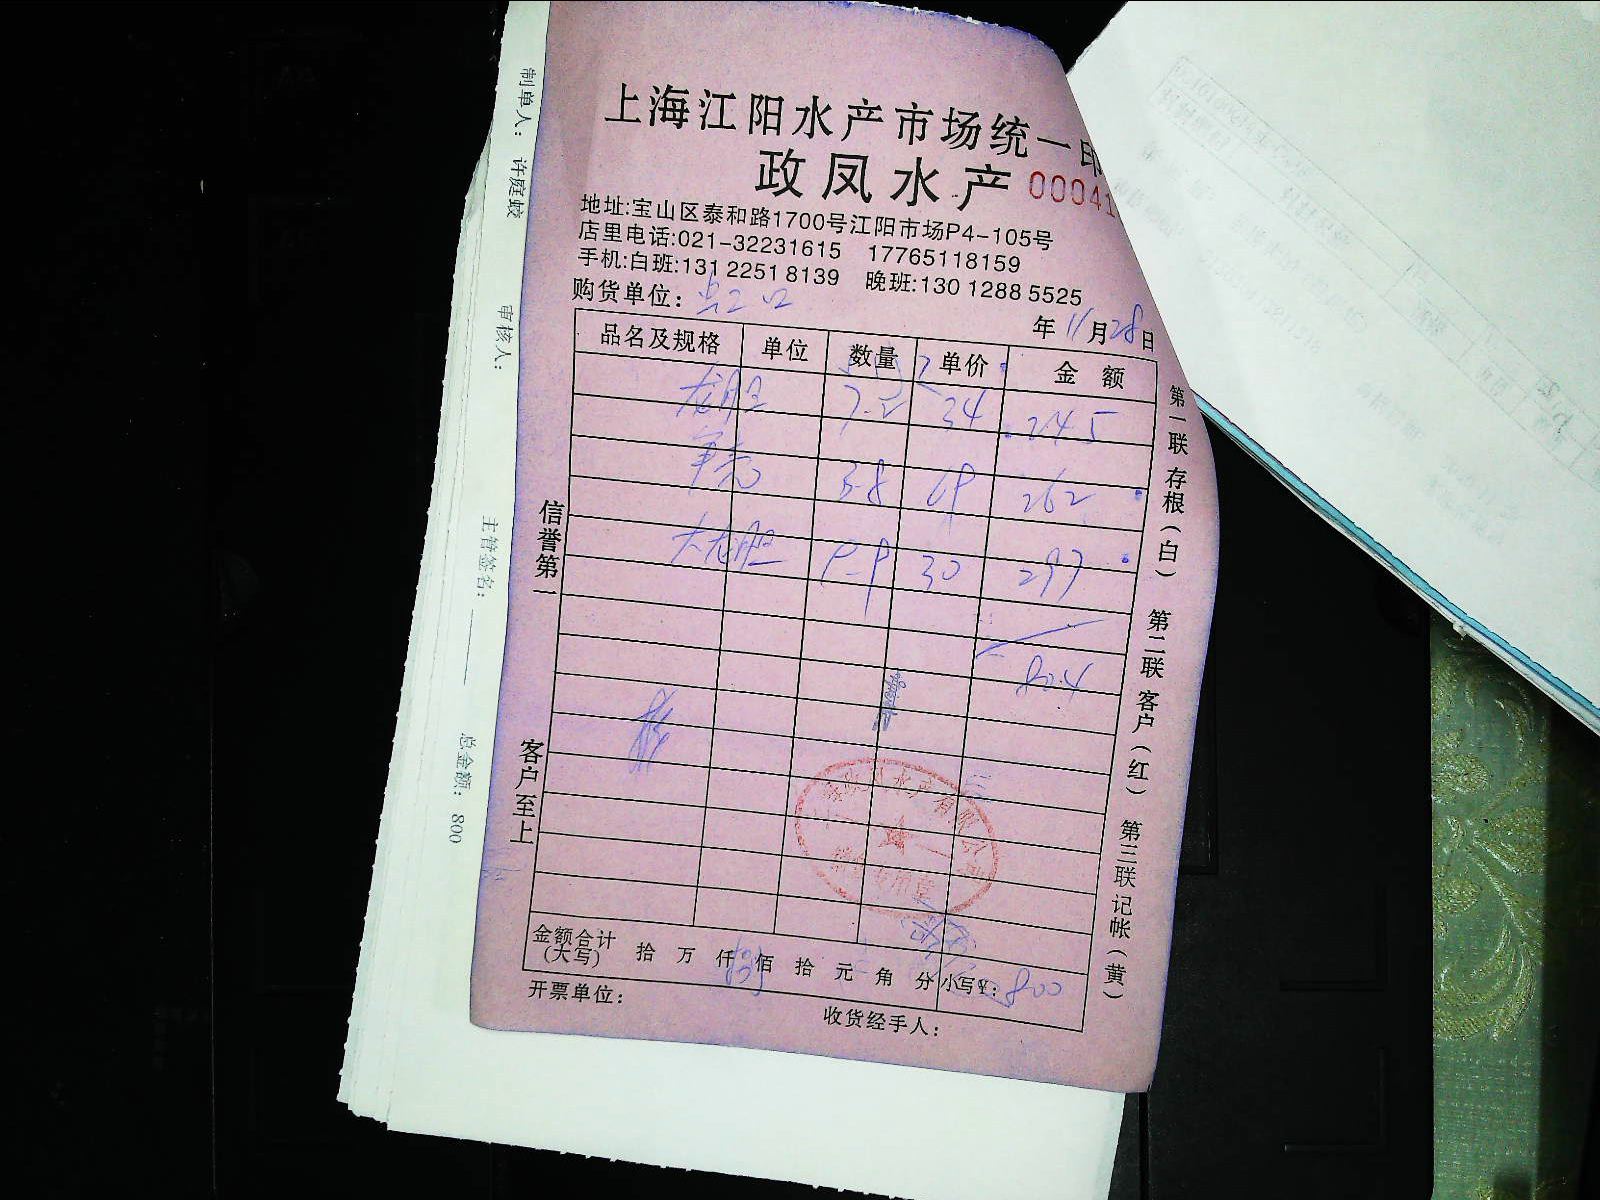 上海江阳水产市场统一印
政凤水产 00041
地址:宝山区泰和路1700号江阳市场P4-105号
店里电话:021-32231615 17765118159
手机:白班:131 2251 8139 晚班:130 1288 5525
购货单位:
年 11月28日
品名及规格 单位 数量 单价 金额
龙胆 7.2 34 245
3.8 69 262
大龙胆 9.9 30 297
804
金额合计(大写) 拾 万 仟 佰 拾 元 角 分 小写￥: 800
开票单位:
收货经手人:
信誉第一
客户至上
第一联 存根(白) 第二联 客户(红) 第三联 记帐(黄)
制单人: 许庭蛟
审核人:
主管签名:
总金额: 800